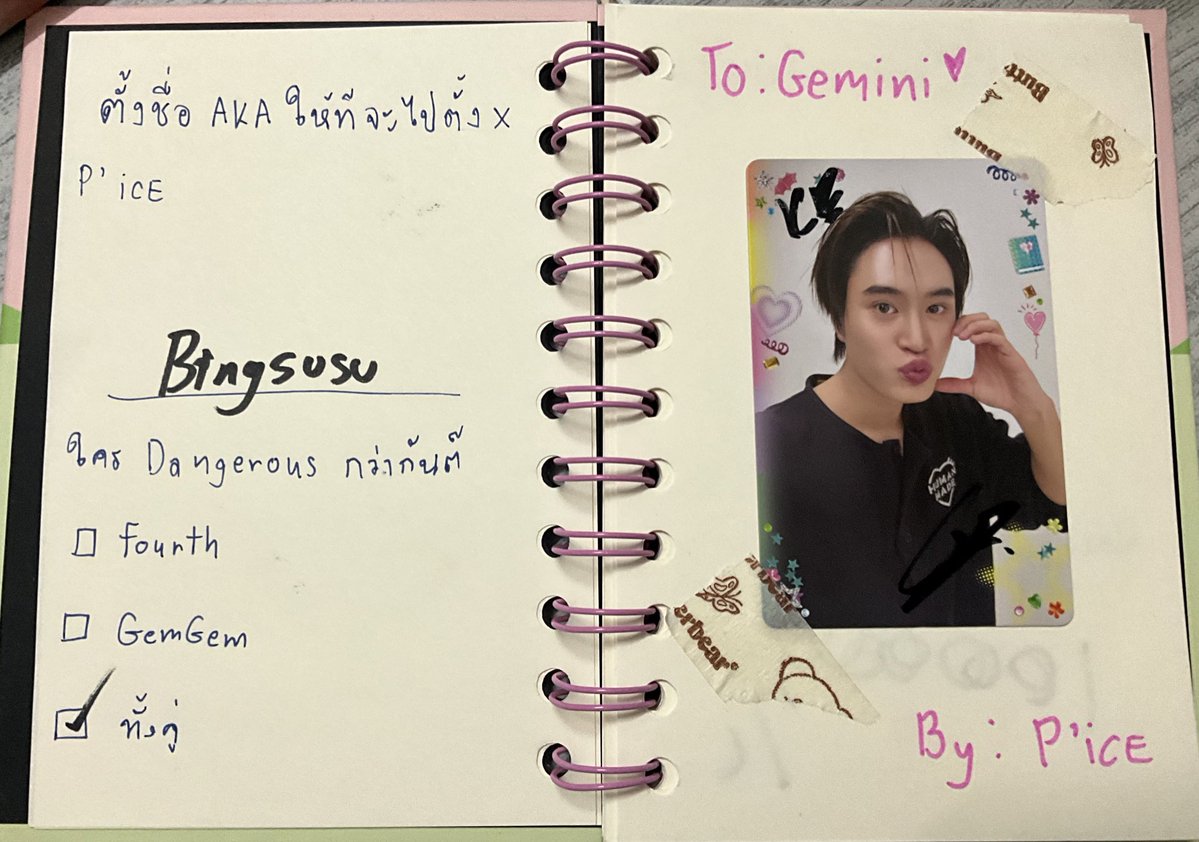 ตั้งชื่อ AKA ให้ทีจะไปตั้ง X
P'ICE
Bingsusu
ใคร Dangerous กว่ากันต๊
Fourth
GemGem
ทั้งคู่
To: Gemini
Butt
HUMAN
MADE
erbear
By: P'ICE